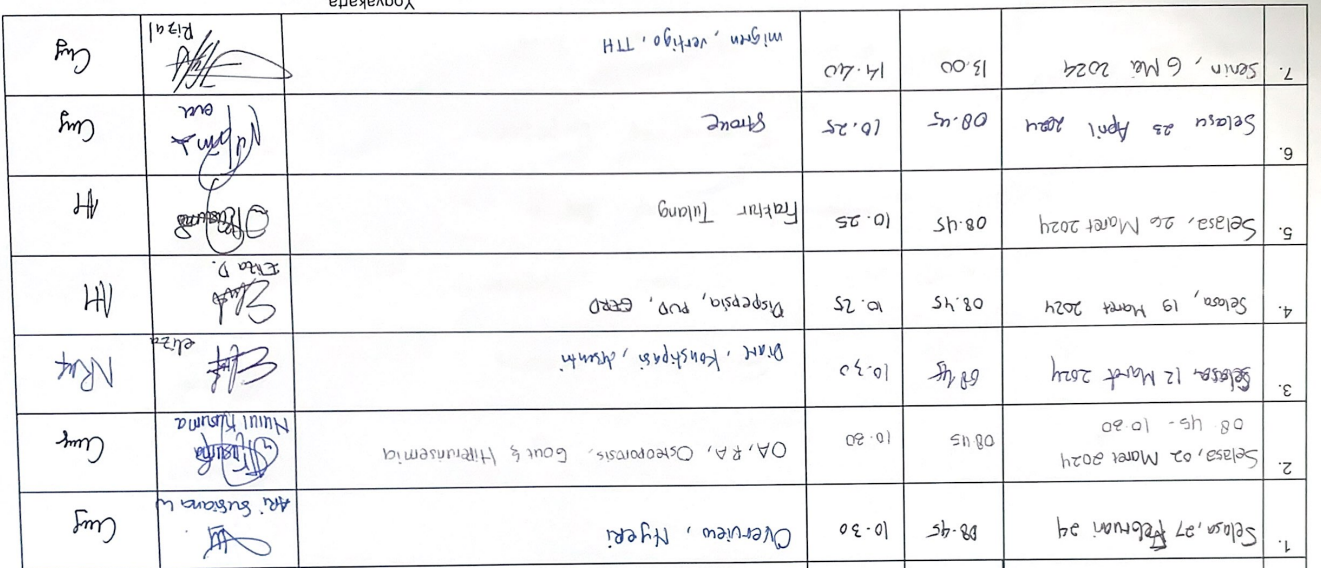 1. Selasa, 27 Februari 24 08.45 10.30 Overview, Nyeri
Ari Susiana W
2. Selasa, 02 Maret 2024 08.45 10.20 OA, RA, Osteoporosis, Gout &
08.45 - 10.20
Nurul Kusuma
3. Selasa 12 Maret 2024 08.45 10.30 Diare, Konstipasi, disentri
eliza
4. Selasa, 19 Maret 2024 08.45 10.25 Dispepsia, PUD, GERD
Eliza D.
5. Selasa, 26 Maret 2024 08.45 10.25 Fraktur Tulang
6. Selasa 23 April 2024 08.45 10.25 Stroke
7. Senin, 6 Mei 2024 13.00 14.40 migren, vertigo, TTH
Rizal
Yogyakarta